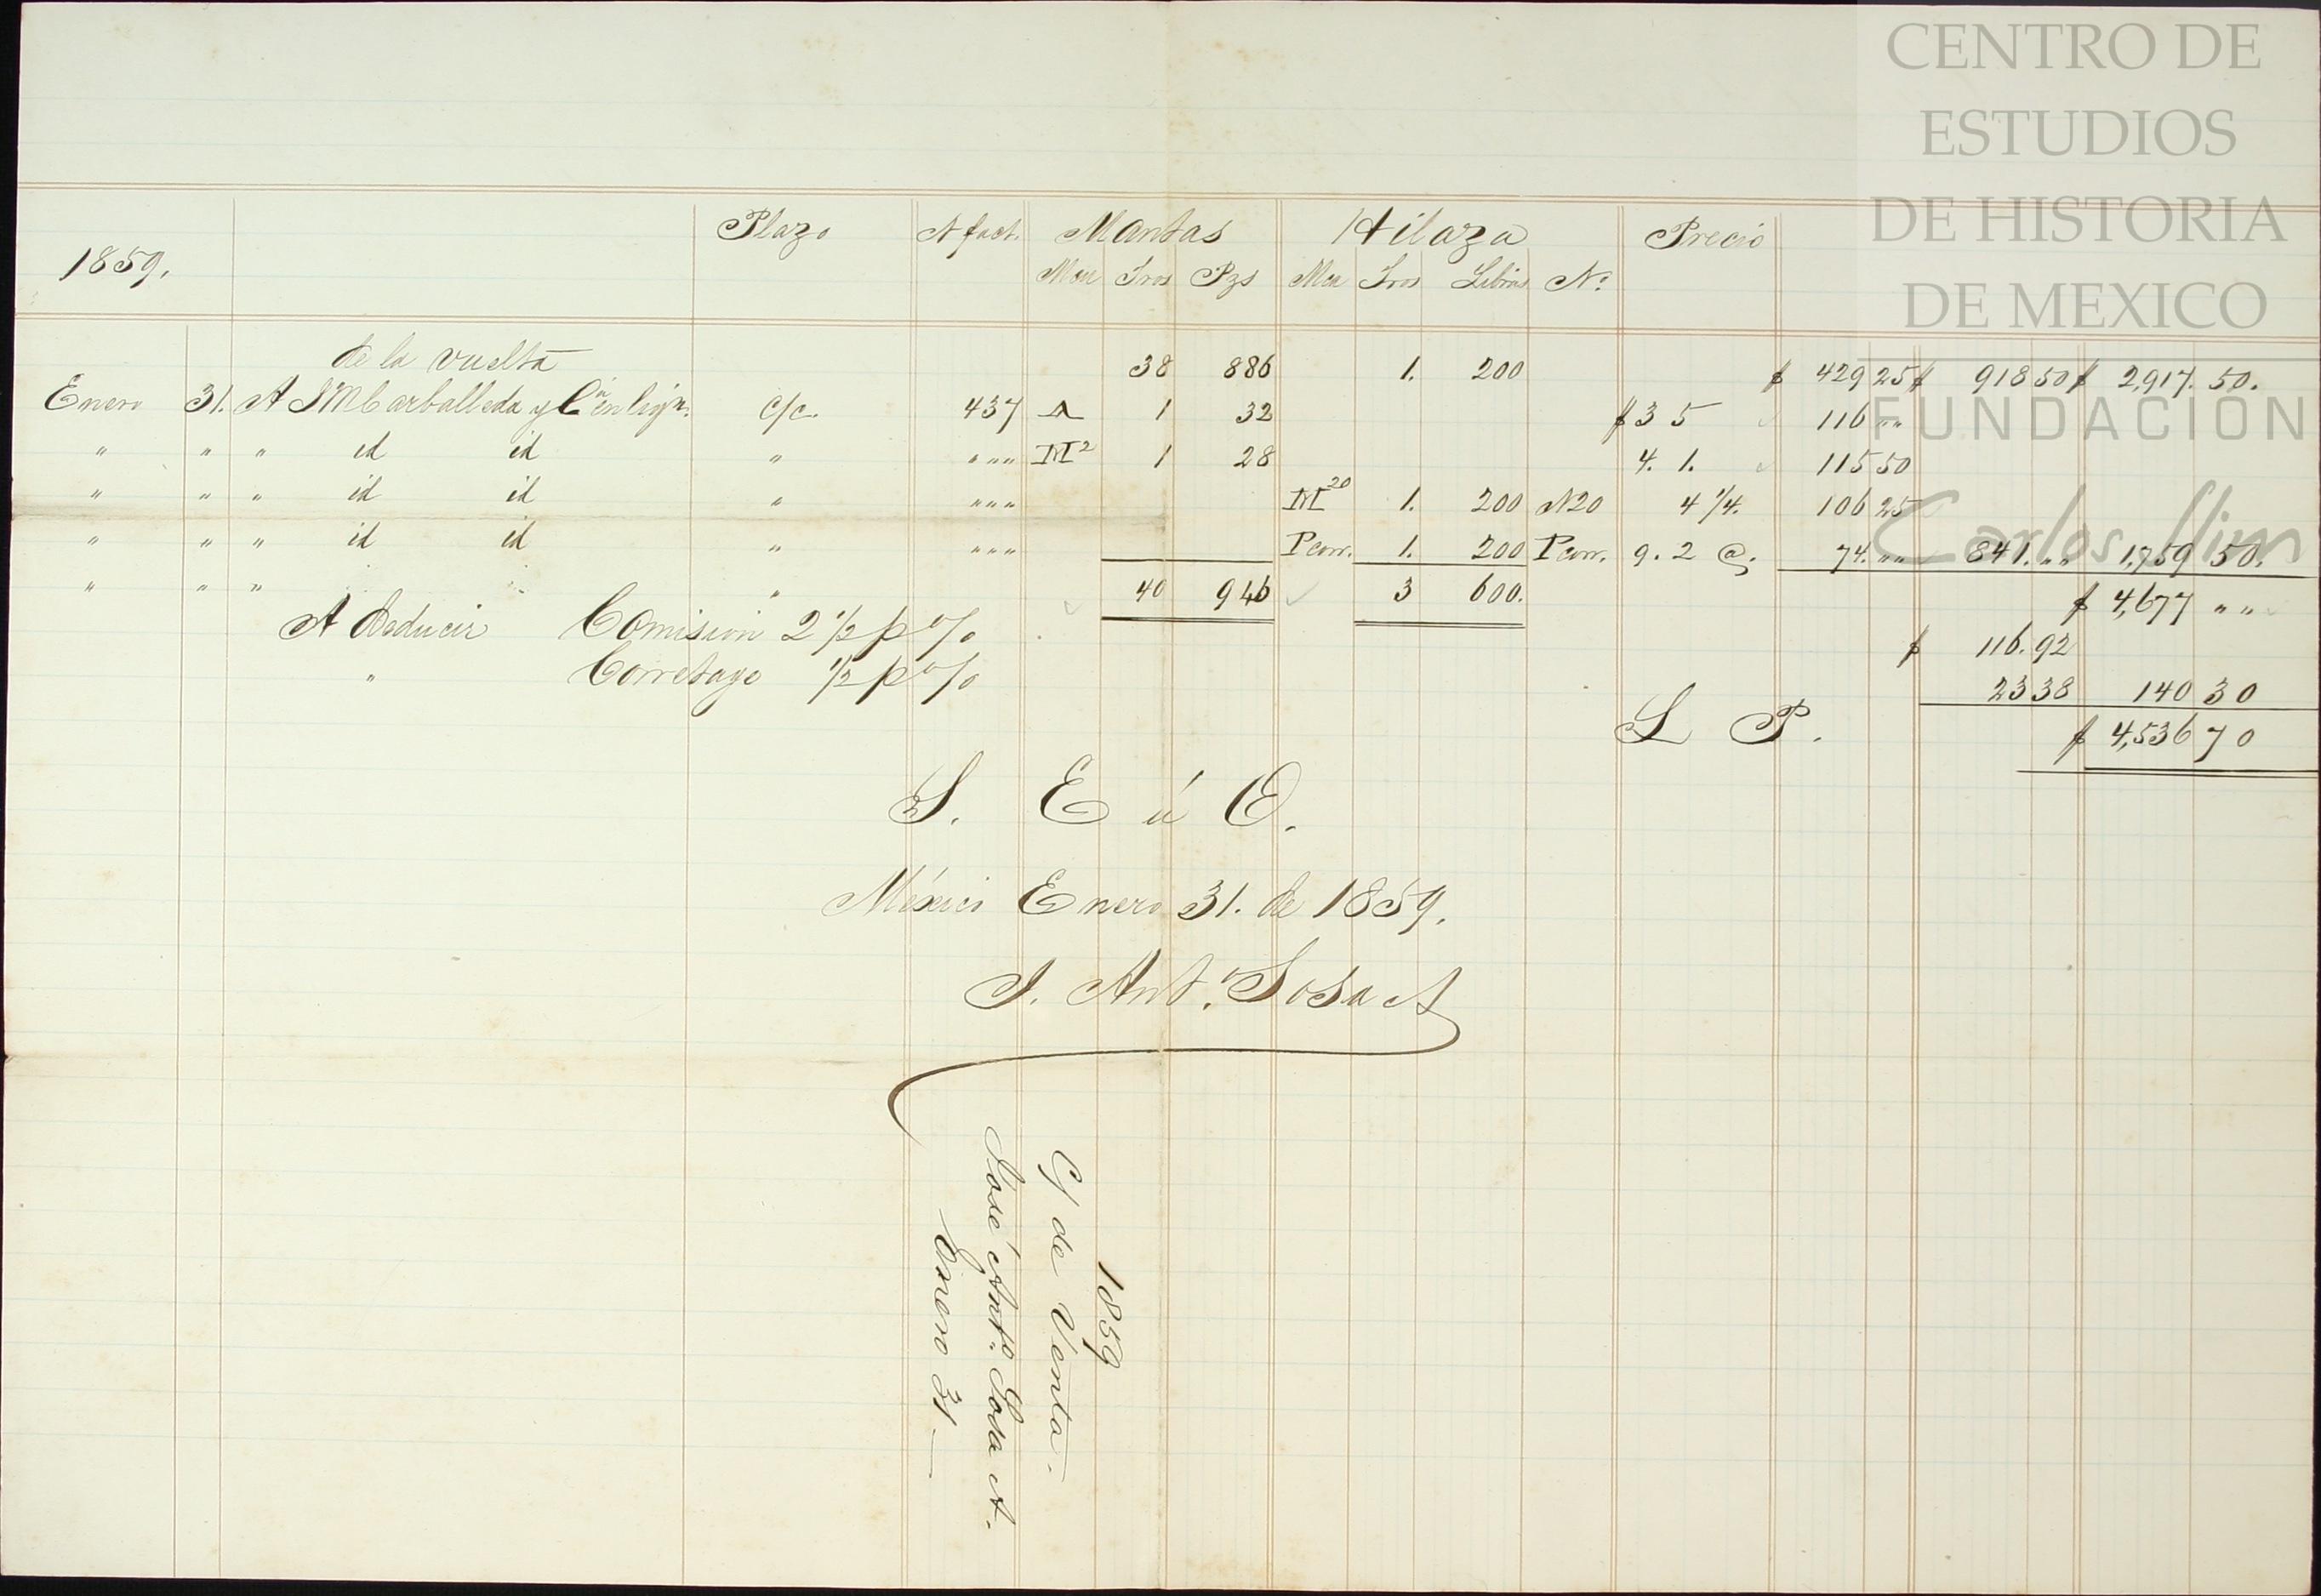 CENTRO DE
ESTUDIOS
DE HISTORIA
DE MEXICO
FUNDACIÓN
Carlos Slim
1859. Plazo N fact. Mantas Hilaza Precio
Mca Tros Pzs Mca Tros Libras Nº
de la vuelta 38 886 1. 200 $ 429 25 $ 918 50 $ 2,917. 50.
Enero 31. A J M Carballeda y Cia en liqn. c/c. 437 A 1 32 $ 3 5 116 " "
" " " id id " " " " M2 1 28 4. 1. 115 50
" " " id id " " " " M20 1. 200 N20 4 1/4. 106 25
" " " id id " " " " P corr. 1. 200 P corr. 9. 2 @. 74. " " 841. " " 1,759 50.
" " " " 40 946 3 600. $ 4,677 " "
A Deducir Comision 2 1/2 p % $ 116. 92
" Corretage 1/2 p % 23 38 140 30
L P. $ 4,536 70
S. E ú O.
México Enero 31. de 1859.
J. Anto. Sosa A
1859
C/ de Venta.
José Anto. Sosa A.
Enero 31